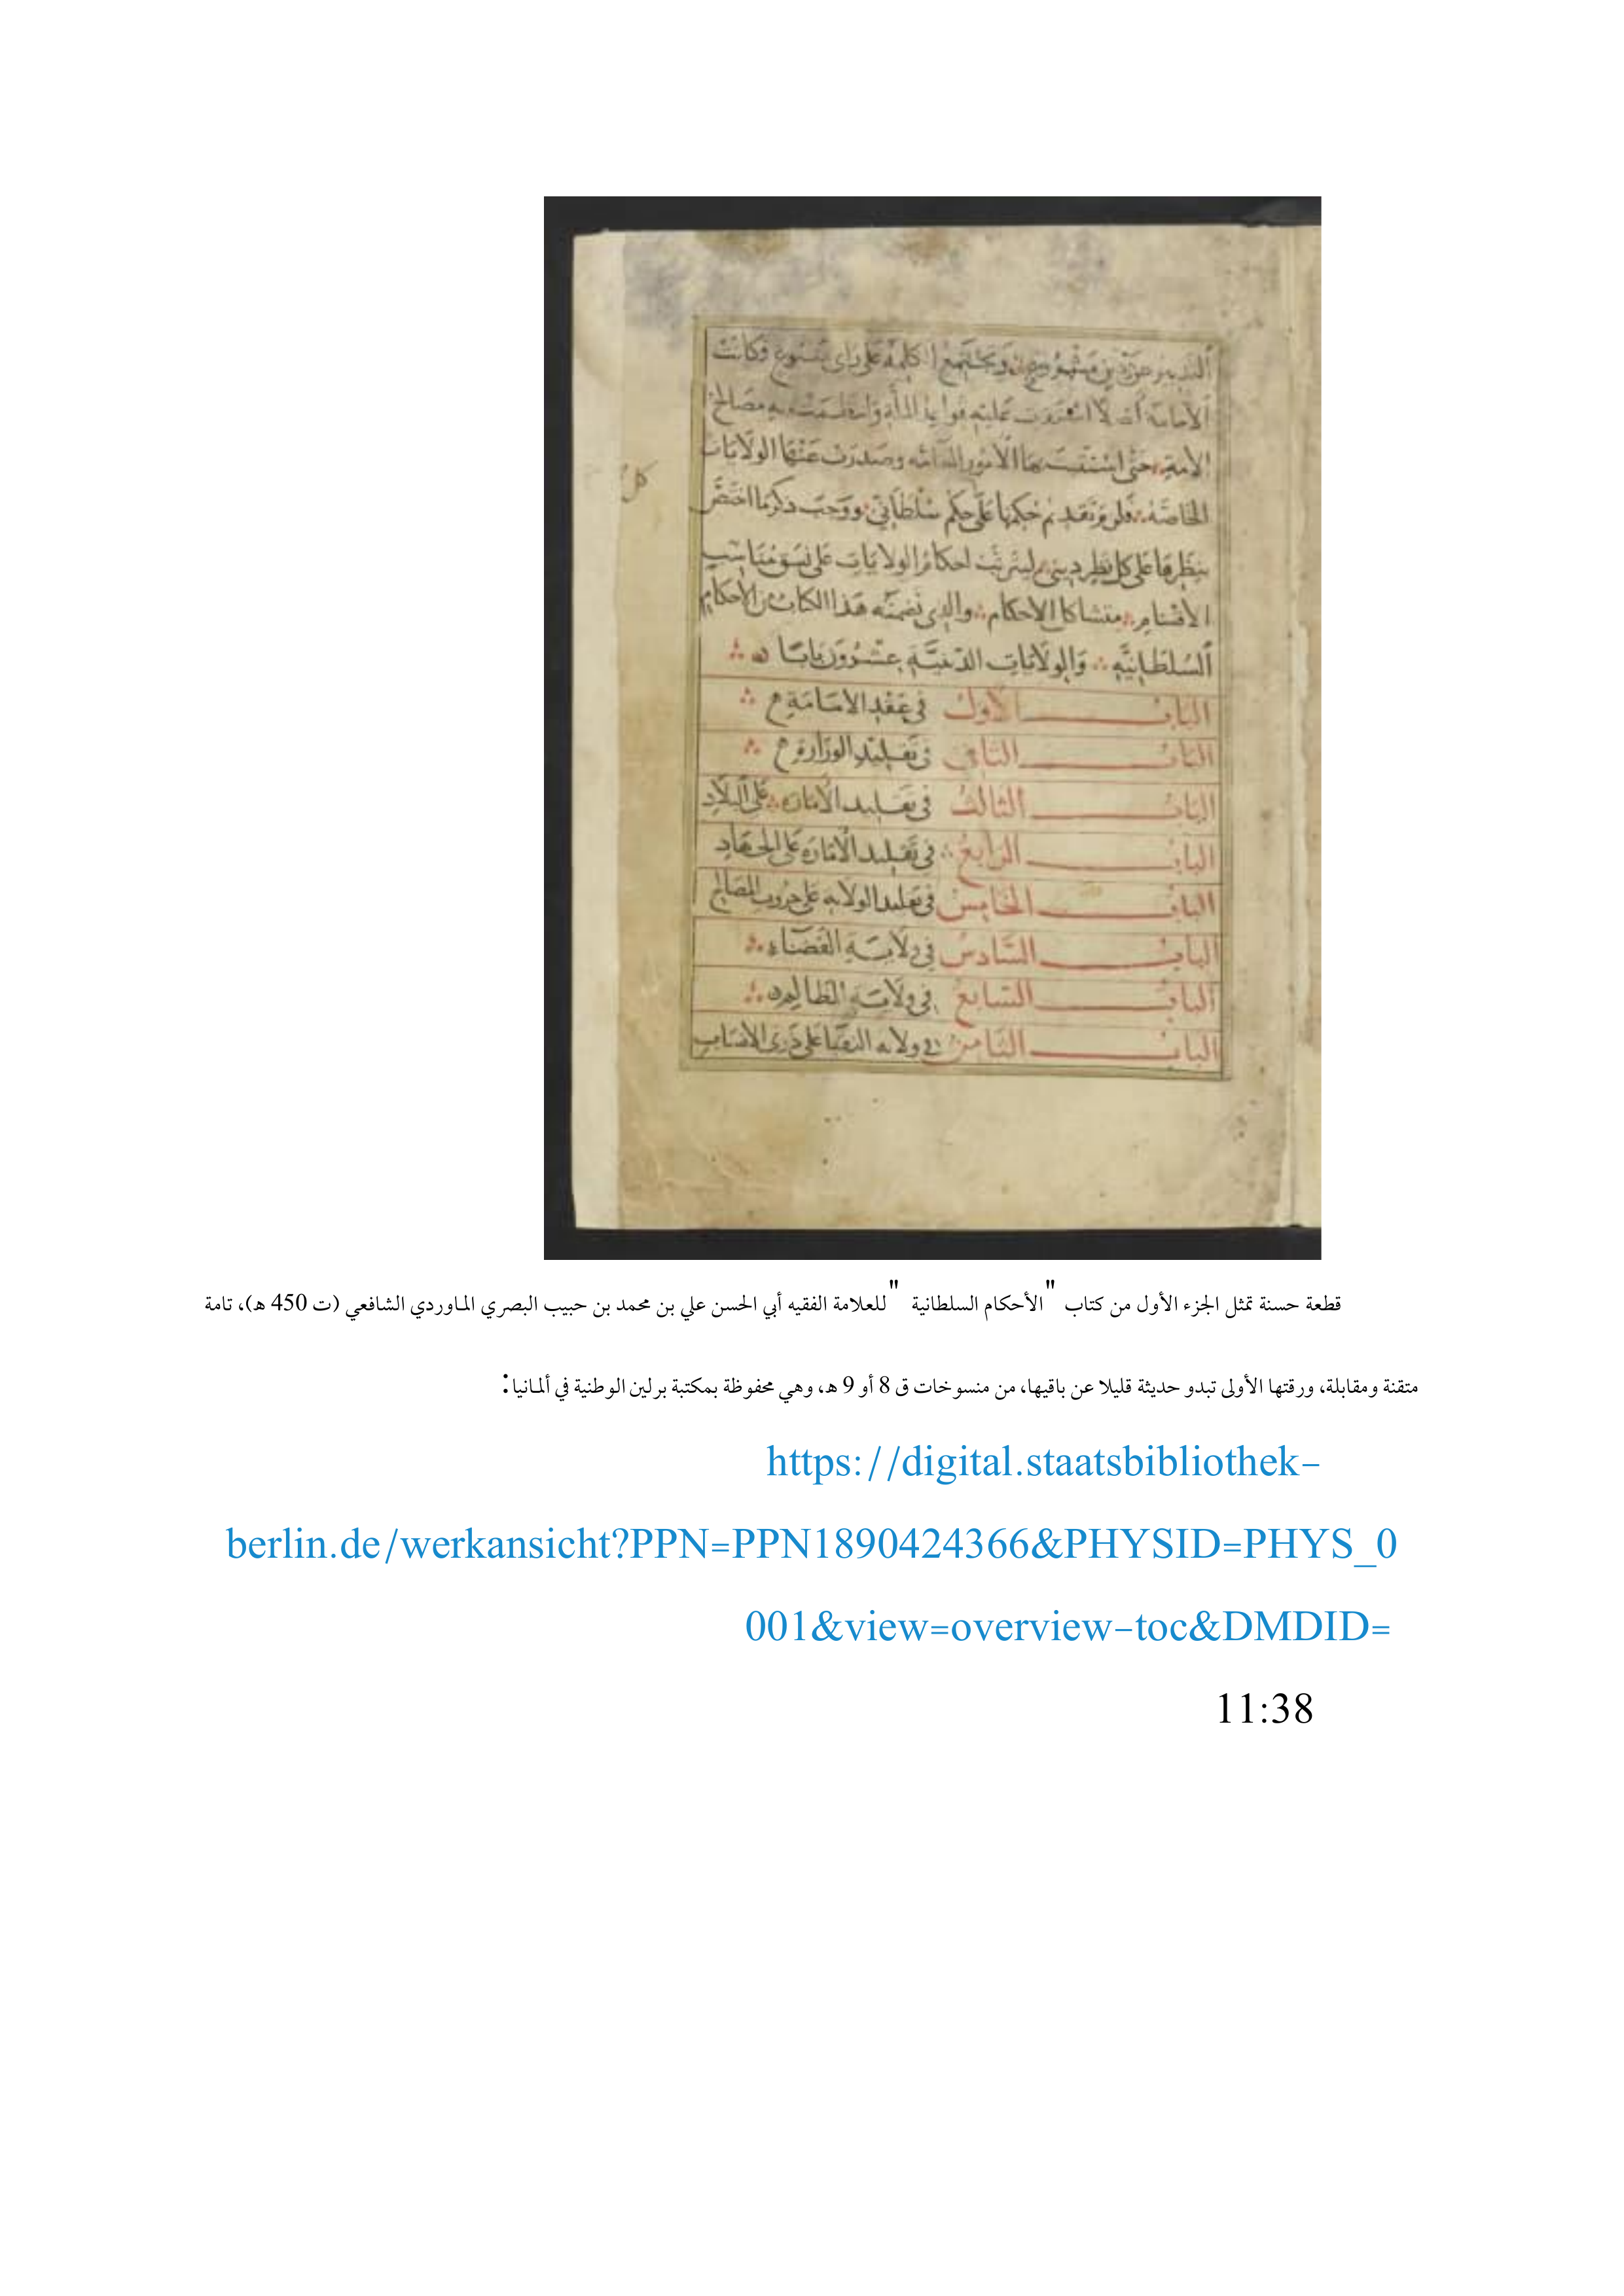 التدبير عن دين مشروع وتجتمع الكلمة على رأي متبوع فكانت
الامامة أصلا استقرت عليه قواعد الملة وانتظمت به مصالح
الامة حتى استتبت بها الامور العامة وصدرت عنها الولايات
الخاصة فلزم تقديم حكمها على كل حكم سلطاني ووجب ذكر ما اختص
بنظرها على كل نظر ديني لترتيب احكام الولايات على نسق متناسب
الاقسام متشاكل الاحكام والذي تضمنه هذا الكتاب من الاحكام
السُلطانيَّه والولايات الدينيَّه عشرون بابا
الباب الأول في عقد الامامة
الباب الثاني في تقليد الوزارة
الباب الثالث في تقليد الأمارة على البلاد
الباب الرابع في تقليد الأمارة على الجهاد
الباب الخامس في تقليد الولايه على حروب المصالح
الباب السّادس في ولاية القضاء
الباب السابع في ولاية المظالم
الباب الثامن في ولايه النقبا على ذوى الانساب
قطعة حسنة تمثل الجزء الأول من كتاب "الأحكام السلطانية" للعلامة الفقيه أبي الحسن علي بن محمد بن حبيب البصري الماوردي الشافعي (ت 450 هـ)، تامة
متقنة ومقابلة، ورقتها الأولى تبدو حديثة قليلا عن باقيها، من منسوخات ق 8 أو 9 هـ، وهي محفوظة بمكتبة برلين الوطنية في ألمانيا:
https://digital.staatsbibliothek-
berlin.de/werkansicht?PPN=PPN1890424366&PHYSID=PHYS_0
001&view=overview-toc&DMDID=
11:38